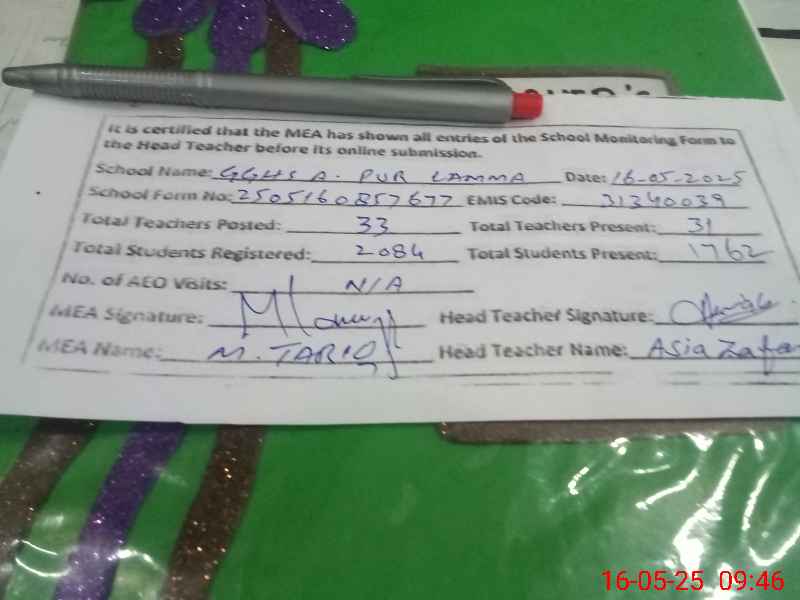 It is certified that the MEA has shown all entries of the School Monitoring Form to
the Head Teacher before its online submission.
School Name: GGHS A. PUR LAMMA Date: 16-05-2025
School Form No: 2505160857677 EMIS Code: 31340039
Total Teachers Posted: 33 Total Teachers Present: 31
Total Students Registered: 2084 Total Students Present: 1762
No. of AEO Visits: N/A
MEA Signature: Head Teacher Signature:
MEA Name: M. TARIQ Head Teacher Name: Asia Zafar
16-05-25 09:46